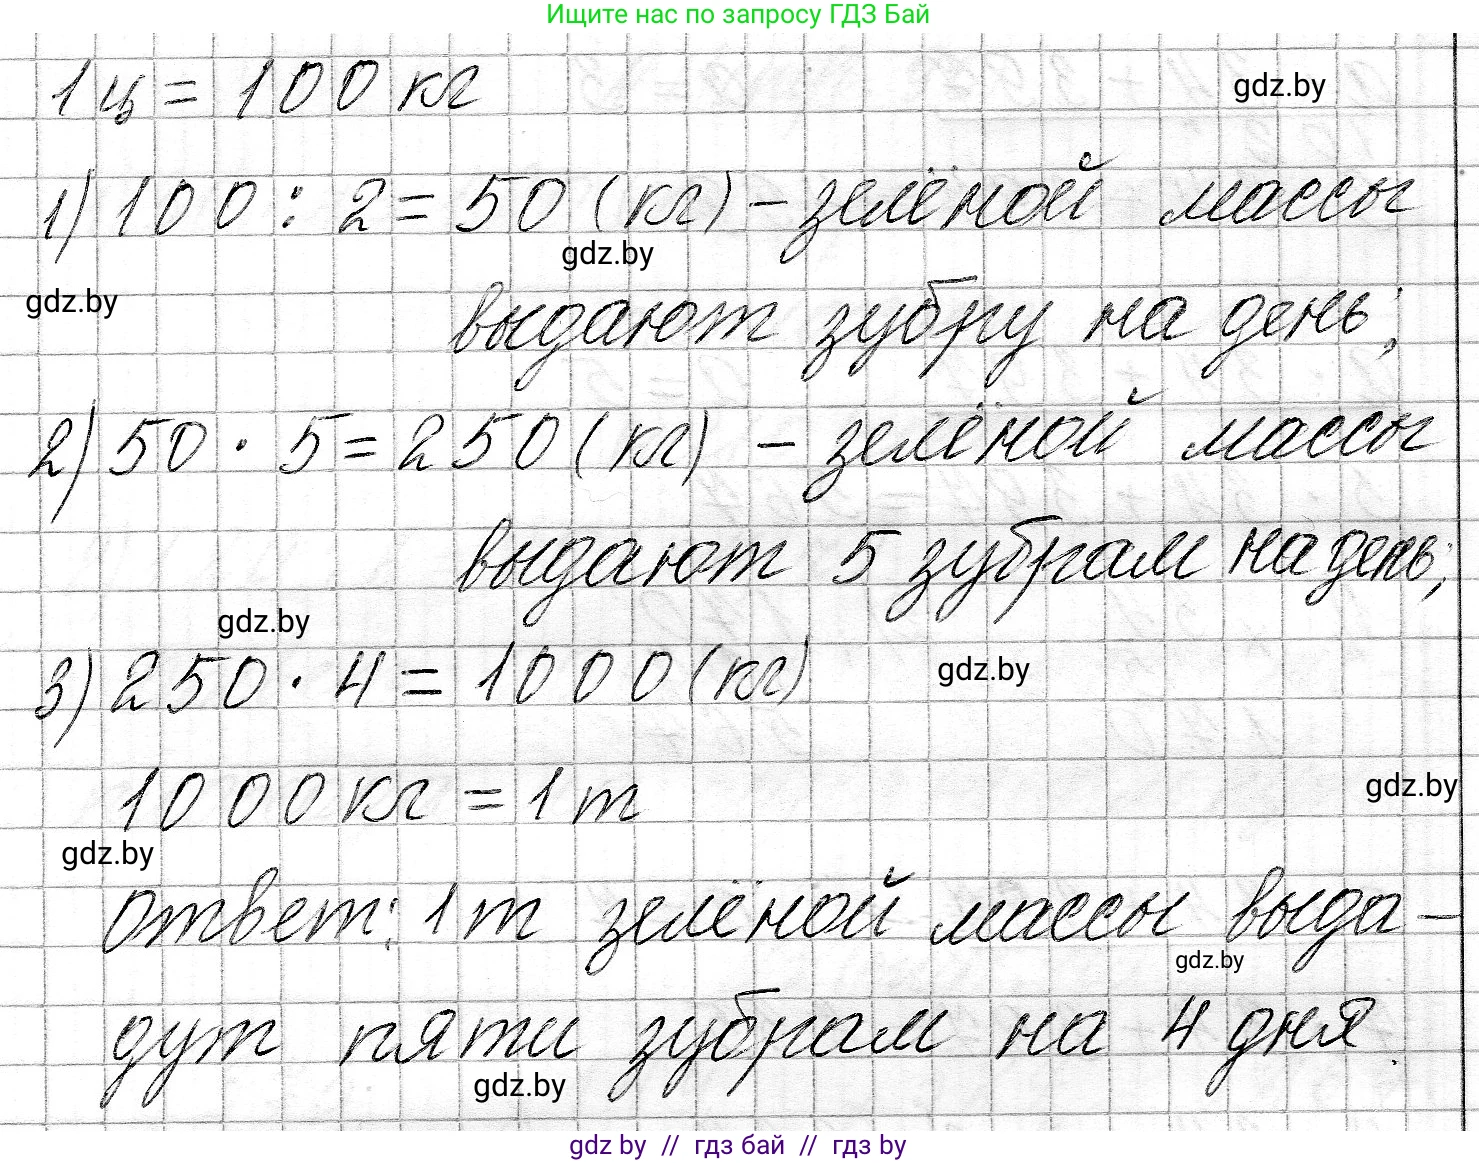 Ищите нас по запросу ГДЗ Бай
1 ц = 100 кг
gdz.by
1) 100 : 2 = 50 (кг) – зелёной массы
gdz.by
gdz.by
выдают зубру на день;
2) 50 · 5 = 250 (кг) – зелёной массы
выдают 5 зубрам на день;
gdz.by
3) 250 · 4 = 1000 (кг)
gdz.by
1000 кг = 1 т
gdz.by
gdz.by
Ответ: 1 т зелёной массы выда-
gdz.by
дут пяти зубрам на 4 дня.
gdz.by
gdz by // гдз бай // гдз by